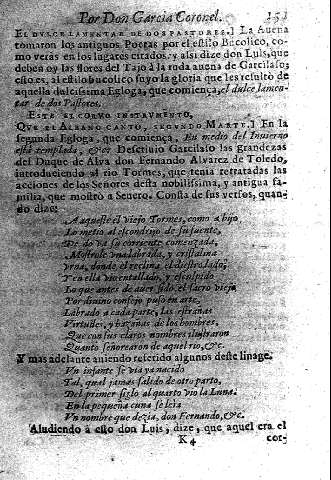 Por Don Garcia Coronel. 151
EL DVLCE LAMENTAR DE DOS PASTORES.] La Auena
tomaron los antiguos Poetas por el estilo Bucolico, co-
mo verás en los lugares citados, y assi dize don Luis, que
deben oy las flores del Tajo à la ruda auena de Garcilaso;
esto es, al estilo bucolico suyo la gloria que les resultò de
aquella dulcissima Egloga, que comiença, el dulce lamen-
tar de dos Pastores.
ESTE EL CORVO INSTRVMENTO,
QVE EL ALBANO CANTO, SEGVNDO MARTE.] En la
segunda Egloga, que comiença, En medio del Inuierno
està templada, &c. Descriuio Garcilaso las grandezas
del Duque de Alva don Fernando Alvarez de Toledo,
introduciendo al rio Tormes, que tenia retratadas las
acciones de los Señores desta nobilissima, y antigua fa-
milia, que mostrò a Seuero. Consta de sus versos, quan-
do dize:
A aqueste el viejo Tormes, como a hijo
Lo metio al escondrijo de su fuente,
De do va su corriente començada,
Mostrole vna labrada, y cristalina
vrna, donde el reclina el diestro lado,
En ella vio entallado, y esculpido
Lo que antes de auer sido el sacro viejo
Por diuino consejo puso en arte,
Labrado a cada parte, las estrañas
Virtudes, y hazañas de los hombres,
Que con sus claros nombres ilustraron
Quanto señorearon de aquel rio, &c.
Y mas adelante auiendo referido algunos deste linage.
Vn infante se via ya nacido
Tal, qual jamas salido de otro parto,
Del primer siglo al quarto vio la Luna.
En la pequeña cuna se leia
Vn nombre que dezia, don Fernando, &c.
Aludiendo à esto don Luis, dize, que aquel era el
K 4 cor-